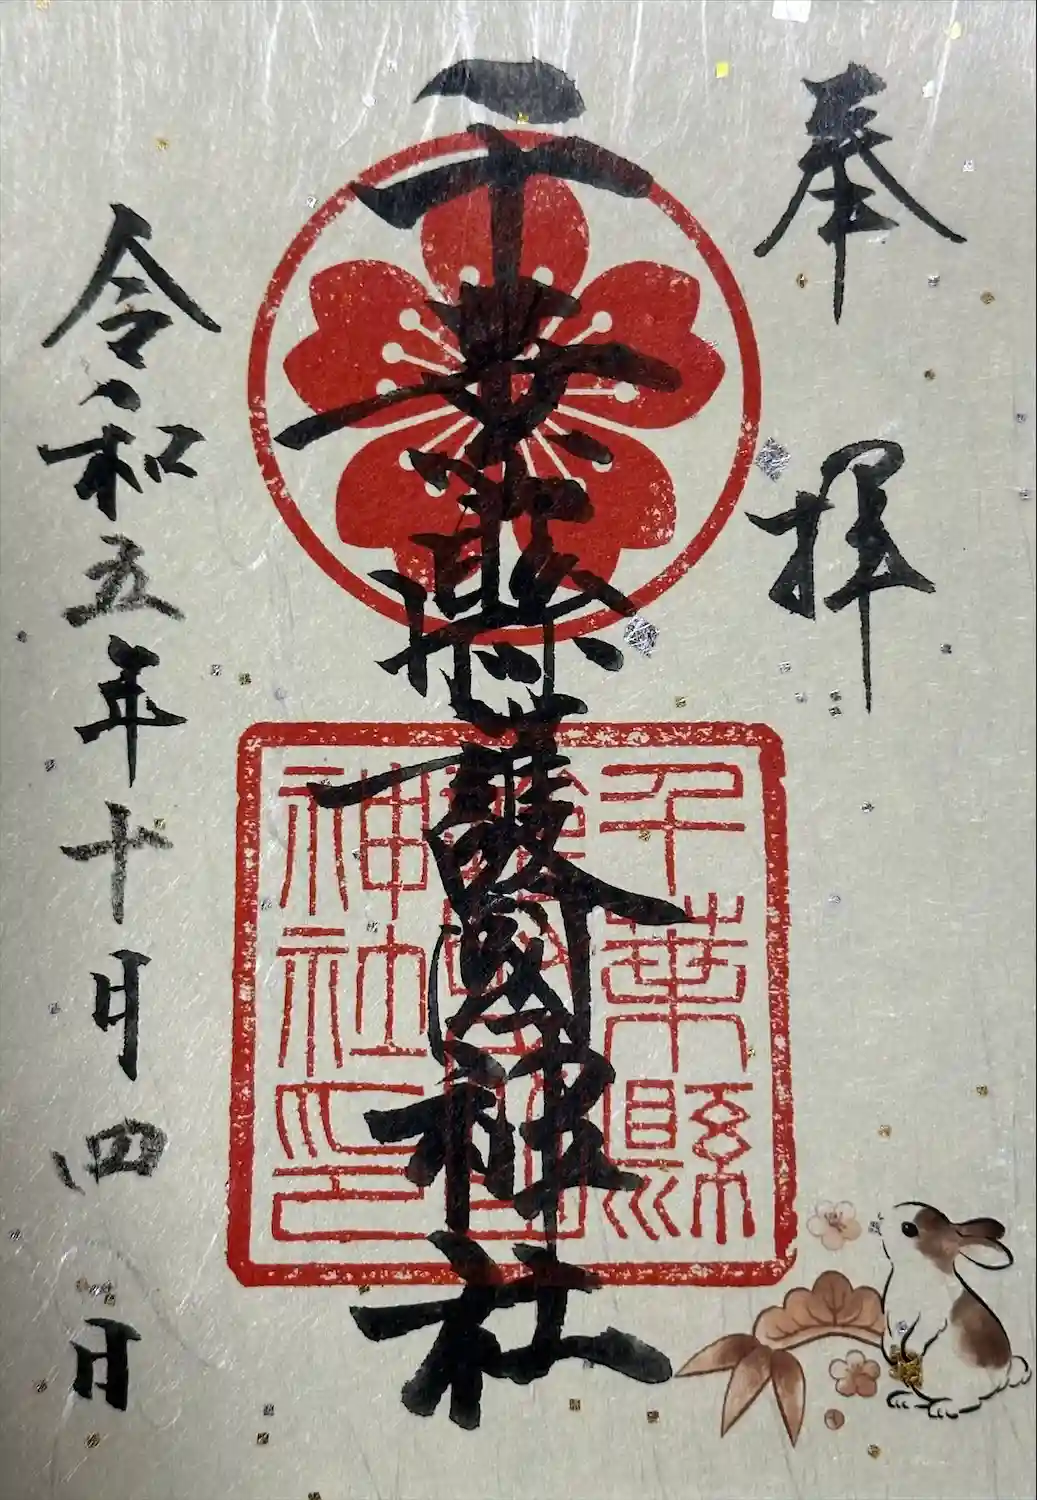 奉拝
千葉縣護國神社
千葉縣
護國神社印
令和五年十月四日